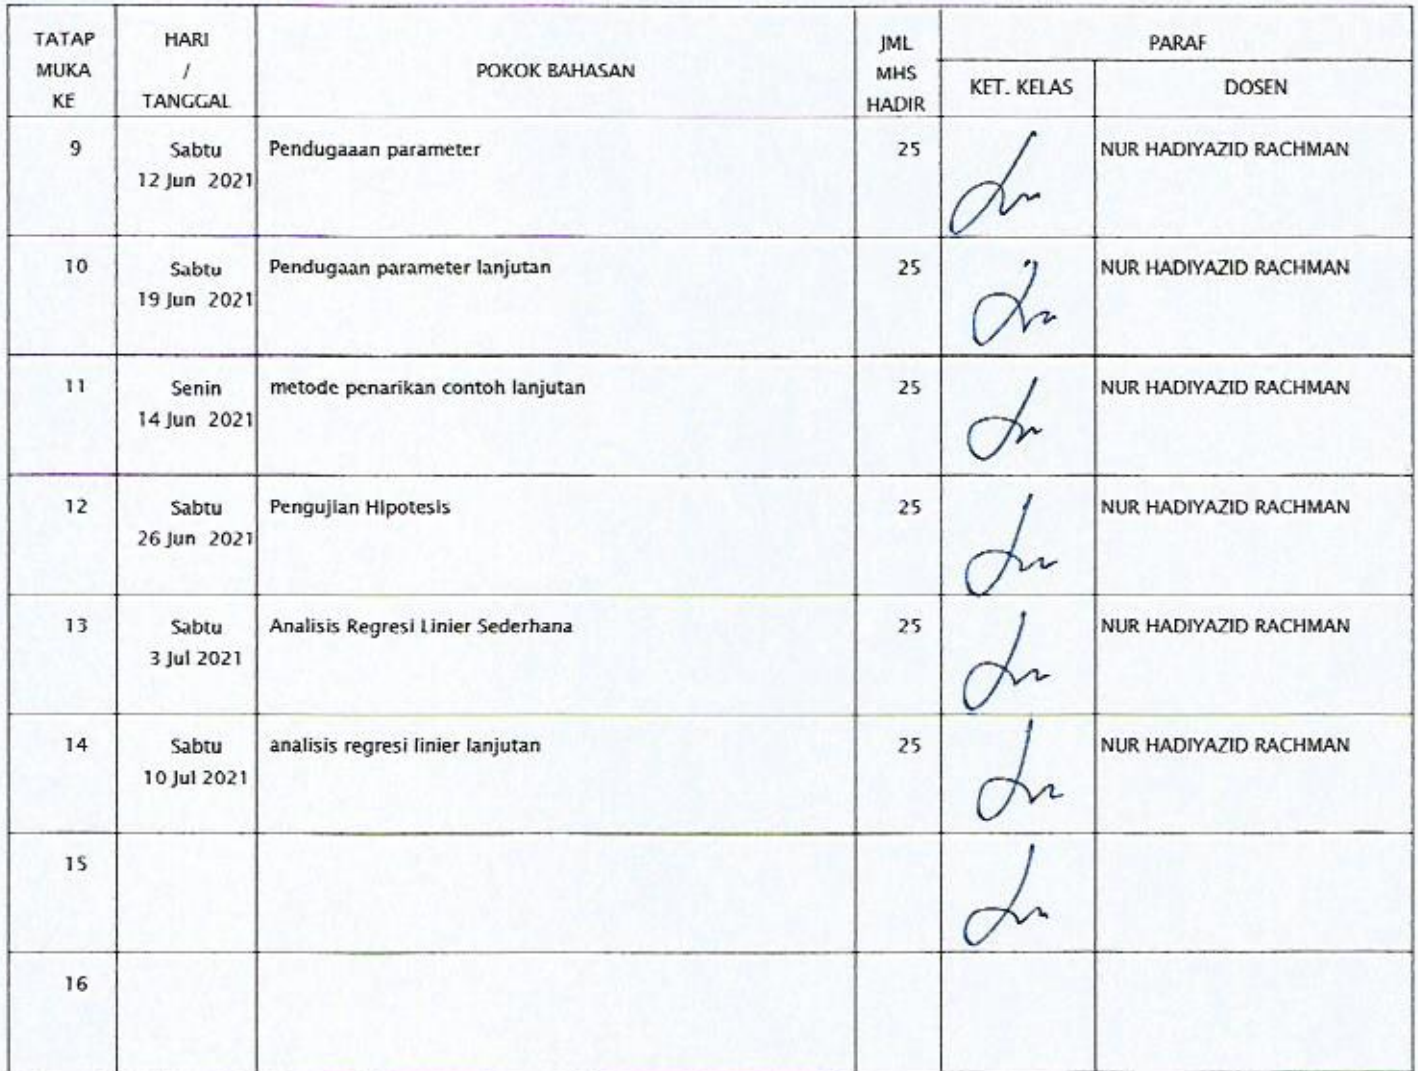 TATAP MUKA KE
HARI / TANGGAL
POKOK BAHASAN
JML MHS HADIR
PARAF
KET. KELAS
DOSEN
9
Sabtu
12 Jun 2021
Pendugaaan parameter
25
NUR HADIYAZID RACHMAN
10
Sabtu
19 Jun 2021
Pendugaan parameter lanjutan
25
NUR HADIYAZID RACHMAN
11
Senin
14 Jun 2021
metode penarikan contoh lanjutan
25
NUR HADIYAZID RACHMAN
12
Sabtu
26 Jun 2021
Pengujian Hipotesis
25
NUR HADIYAZID RACHMAN
13
Sabtu
3 Jul 2021
Analisis Regresi Linier Sederhana
25
NUR HADIYAZID RACHMAN
14
Sabtu
10 Jul 2021
analisis regresi linier lanjutan
25
NUR HADIYAZID RACHMAN
15
16